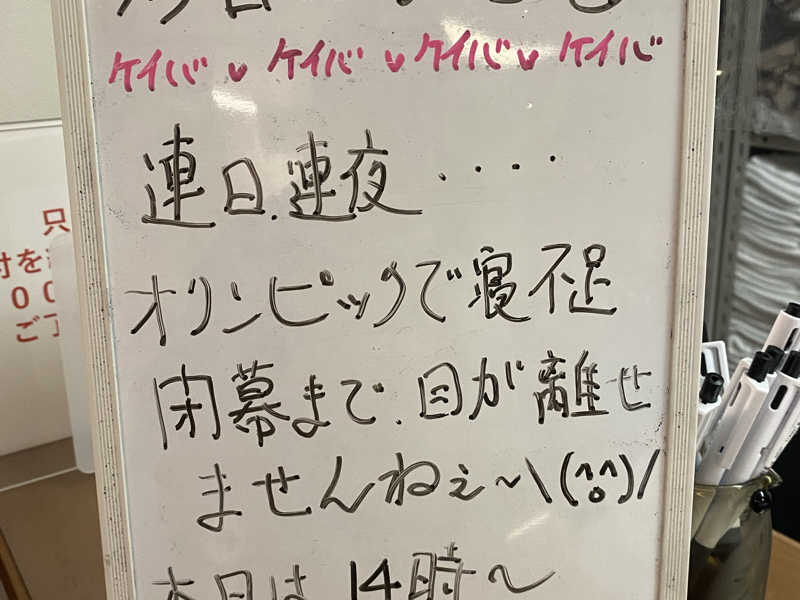 ケイバ♥ケイバ♥ケイバ♥ケイバ
連日.連夜‥‥
オリンピックで寝不足
閉幕まで.目が離せ
ませんねぇ~\(^o^)/
本日は14時~
只
付を
00
ご了